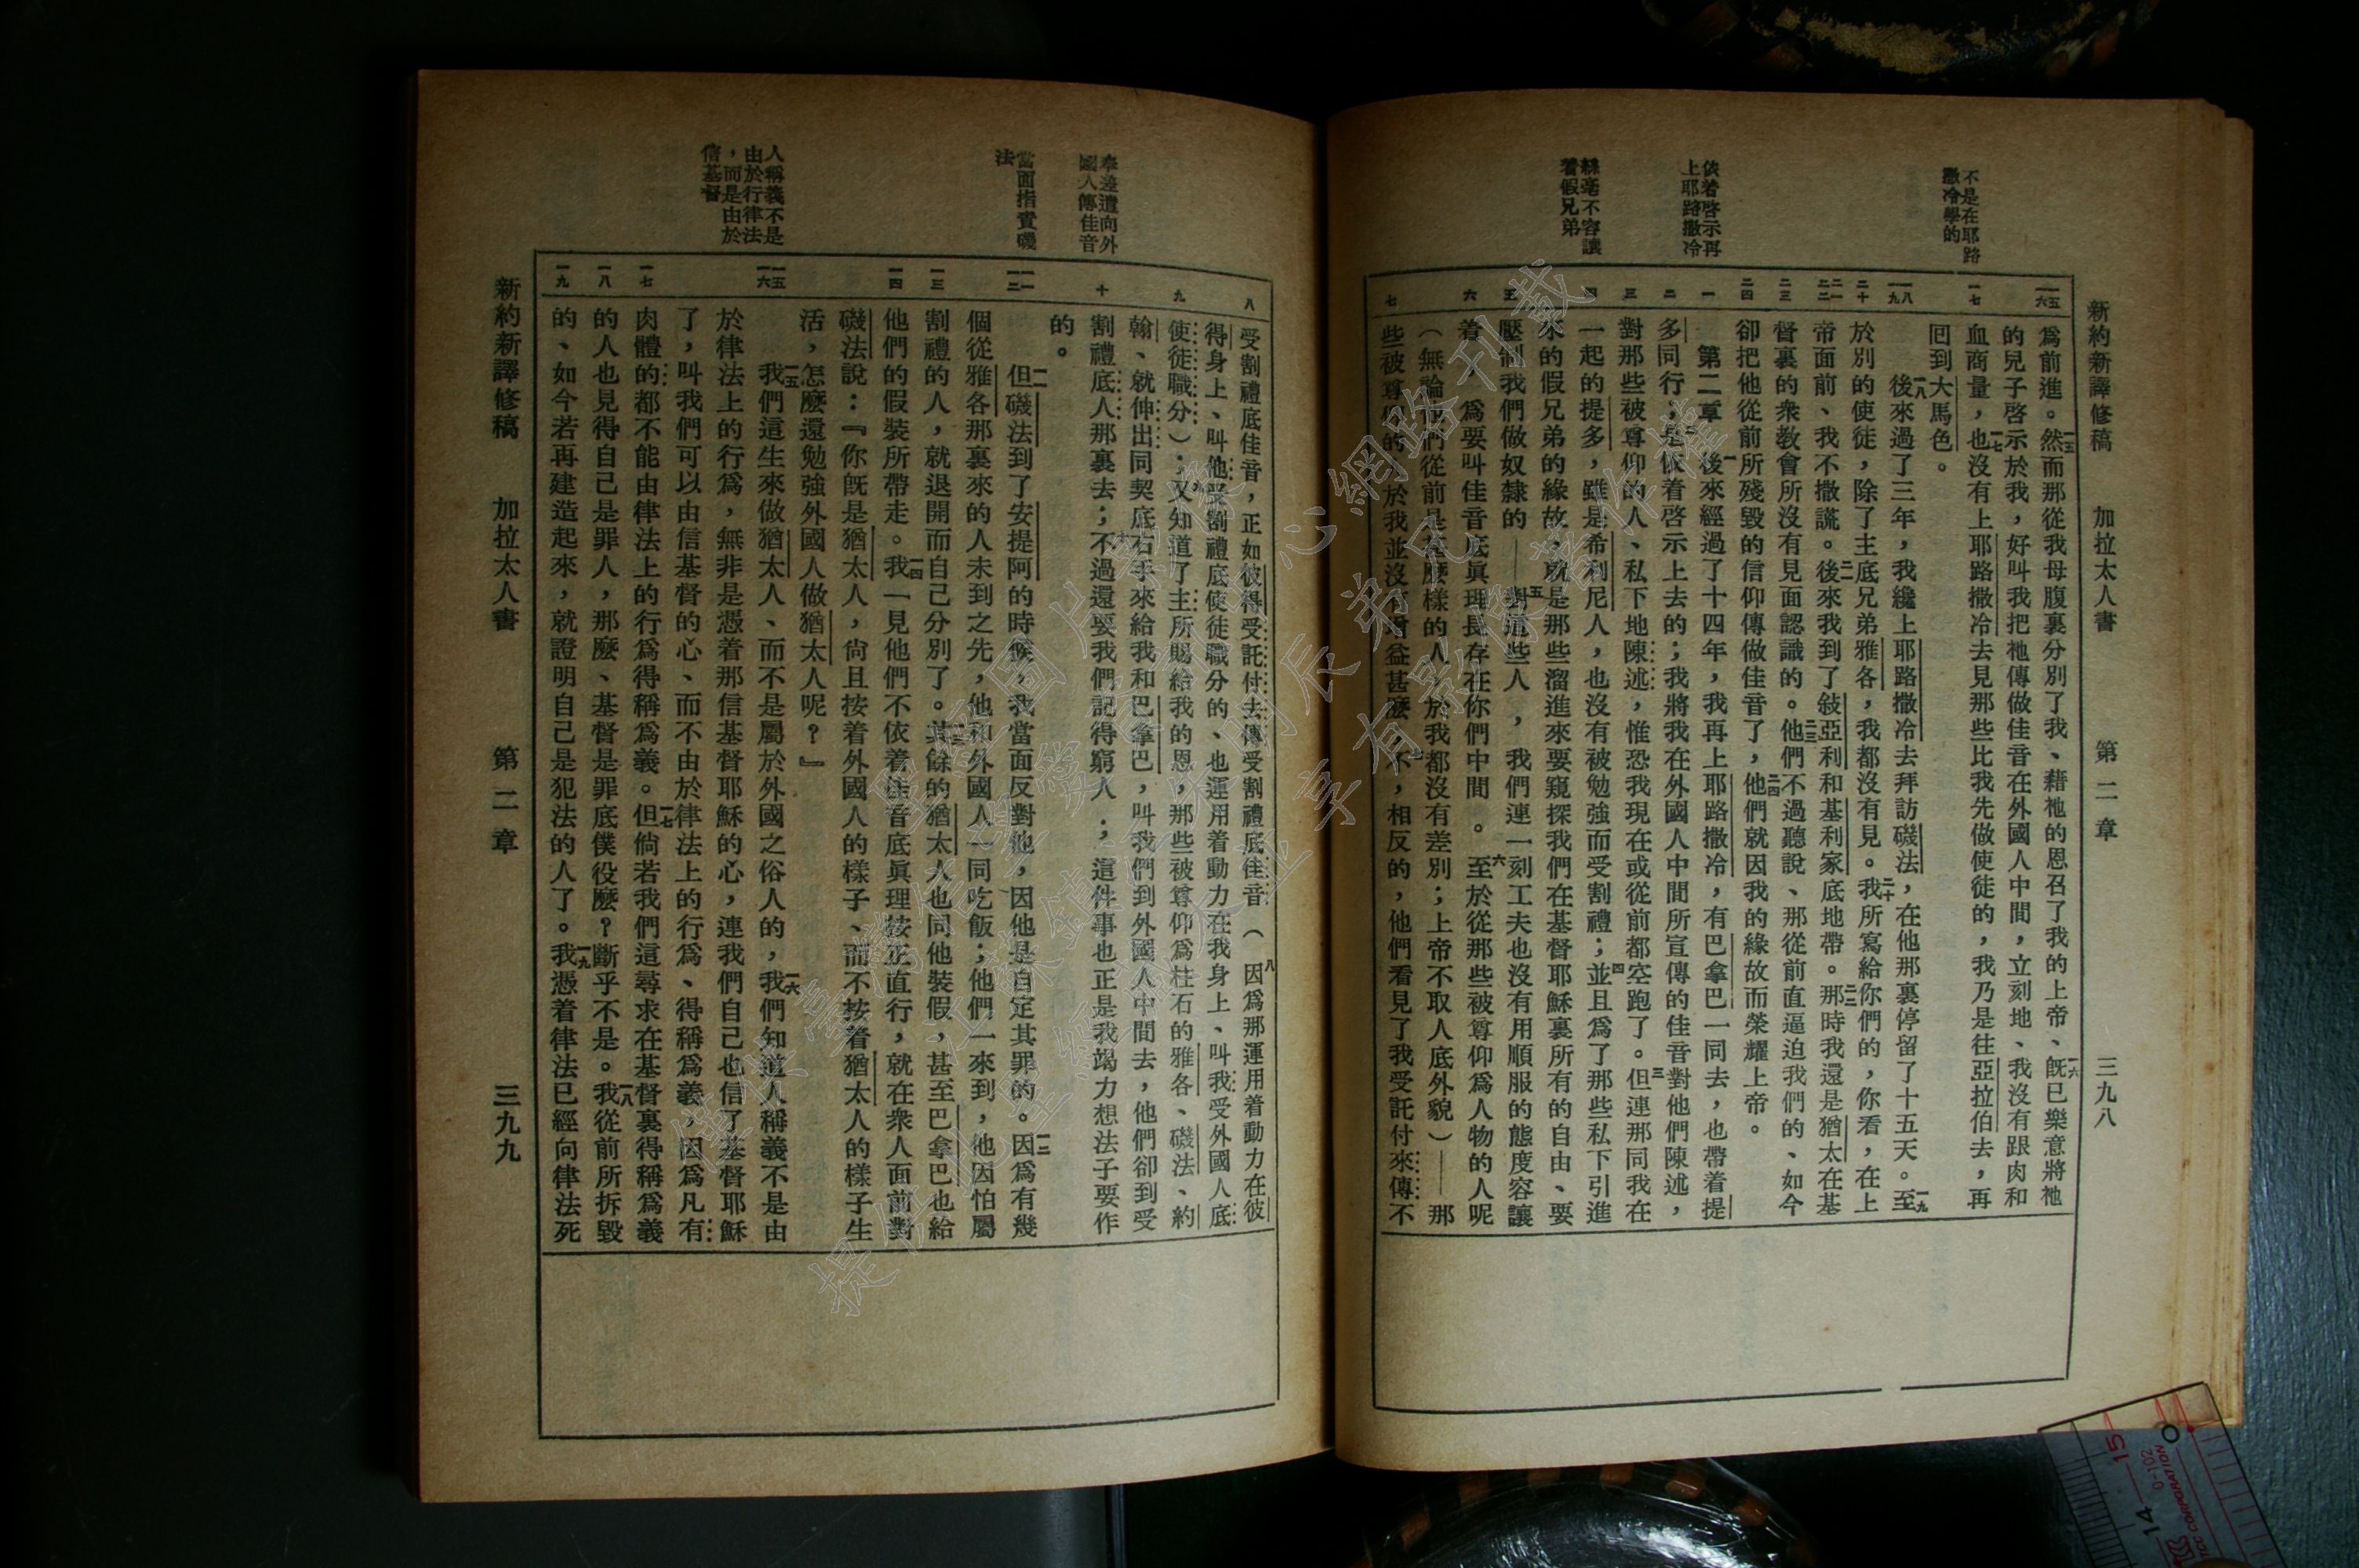 新約新譯修稿　加拉太人書　第二章　三九八
不是在耶路
撒冷學的
依着啓示再
上耶路撒冷
絲毫不容讓
着假兄弟
一五
一六
一七
一八
一九
二十
二一
二二
二三
二四
一
二
三
四
五
六
七
爲前進。一五然而那從我母腹裏分別了我、藉祂的恩召了我的上帝、一六旣已樂意將祂
的兒子啓示於我，好叫我把祂傳做佳音在外國人中間，立刻地、我沒有跟肉和
血商量，一七也沒有上耶路撒冷去見那些比我先做使徒的，我乃是往亞拉伯去，再
囘到大馬色。
一八後來過了三年，我纔上耶路撒冷去拜訪磯法，在他那裏停留了十五天。一九至
於別的使徒，除了主底兄弟雅各，我都沒有見。二十我所寫給你們的，你看，在上
帝面前、我不撒謊。二一後來我到了敍亞利和基利家底地帶。二二那時我還是猶太在基
督裏的衆教會所沒有見面認識的。二三他們不過聽說、那從前直逼迫我們的、如今
卻把他從前所殘毀的信仰傳做佳音了，二四他們就因我的緣故而榮耀上帝。
第二章　一後來經過了十四年，我再上耶路撒冷，有巴拿巴一同去，也帶着提
多同行；二是依着啓示上去的；我將我在外國人中間所宣傳的佳音對他們陳述，
對那些被尊仰的人、私下地陳述，惟恐我現在或從前都空跑了。三但連那同我在
一起的提多，雖是希利尼人，也沒有被勉強而受割禮；四並且爲了那些私下引進
來的假兄弟的緣故，就是那些溜進來要窺探我們在基督耶穌裏所有的自由、要
壓制我們做奴隸的——五對這些人，我們連一刻工夫也沒有用順服的態度容讓
着、爲要叫佳音底眞理長存在你們中間。六至於從那些被尊仰爲人物的人呢
（無論他們從前是甚麼樣的人、於我都沒有差別；上帝不取人底外貌）——那
些被尊仰的、於我並沒有增益甚麼。七不，相反的，他們看見了我受託付來傳不
奉差遣向外
國人傳佳音
當面指責磯
法
人稱義不是
由於行律法
，而是由於
信基督
八
九
十
一一
一二
一三
一四
一五
一六
一七
一八
一九
受割禮底佳音，正如彼得受託付去傳受割禮底佳音（八因爲那運用着動力在彼
得身上、叫他受割禮底使徒職分的、也運用着動力在我身上、叫我受外國人底
使徒職分）；九又知道了主所賜給我的恩，那些被尊仰爲柱石的雅各、磯法、約
翰、就伸出同契底右手來給我和巴拿巴，叫我們到外國人中間去，他們卻到受
割禮底人那裏去；十不過還要我們記得窮人；這件事也正是我竭力想法子要作
的。
一一但磯法到了安提阿的時候，我當面反對他，因他是自定其罪的。一二因爲有幾
個從雅各那裏來的人未到之先，他和外國人一同吃飯；他們一來到，他因怕屬
割禮的人，就退開而自己分別了。一三其餘的猶太人也同他裝假，甚至巴拿巴也給
他們的假裝所帶走。一四我一見他們不依着佳音底眞理按正直行，就在衆人面前對
磯法說：『你旣是猶太人，尙且按着外國人的樣子、而不按着猶太人的樣子生
活，怎麼還勉強外國人做猶太人呢？』
一五我們這生來做猶太人、而不是屬於外國之俗人的，一六我們知道人稱義不是由
於律法上的行爲，無非是憑着那信基督耶穌的心，連我們自己也信了基督耶穌
了，叫我們可以由信基督的心、而不由於律法上的行爲、得稱爲義，因爲凡有
肉體的都不能由律法上的行爲得稱爲義。一七但倘若我們這尋求在基督裏得稱爲義
的人也見得自己是罪人，那麼、基督是罪底僕役麼？斷乎不是。一八我從前所拆毀
的、如今若再建造起來，就證明自己是犯法的人了。一九我憑着律法已經向律法死
新約新譯修稿　加拉太人書　第二章　三九九
15
14
0-102
CORPORATION